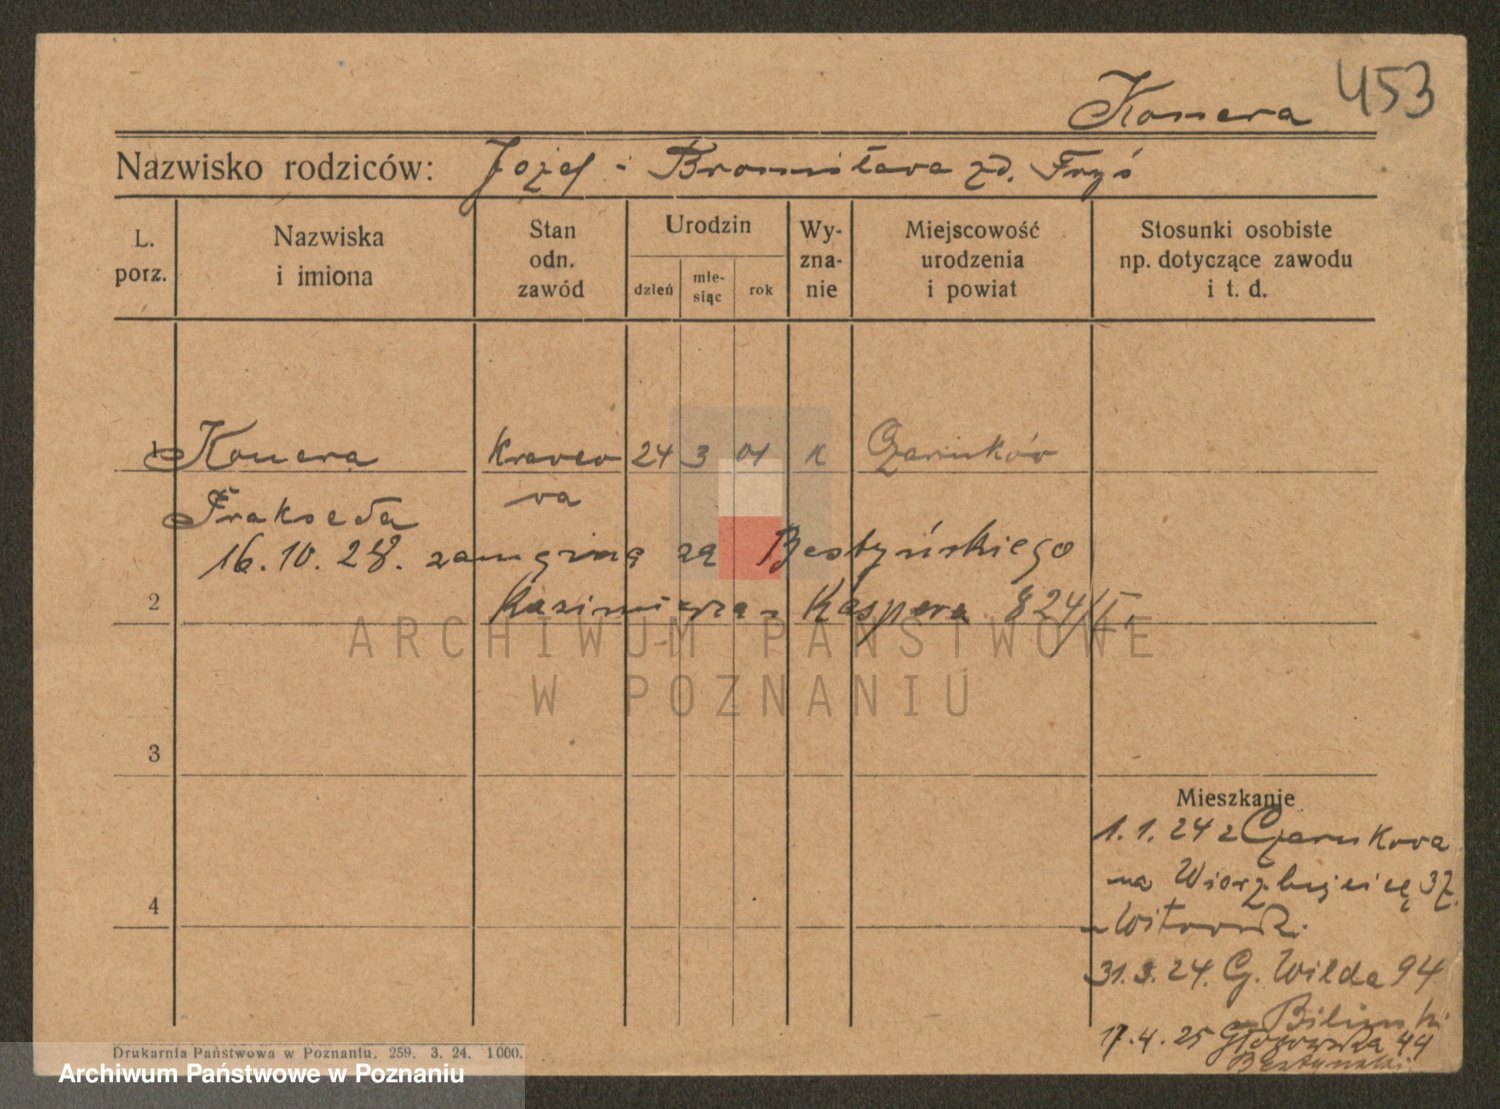 Konera 453
Nazwisko rodziców: Jozef i Bronisława zd. Fryś
L. porz.
Nazwiska i imiona
Stan odn. zawód
Urodzin
dzień
mie- siąc
rok
Wy- zna- nie
Miejscowość urodzenia i powiat
Stosunki osobiste np. dotyczące zawodu i t. d.
1 Konera Krawco 24 3 01 K Czarnków
Prakseda wa
16.10.28. zamężna za Bestyńskiego
2 Kazimierza - Kaspera 824/I.
ARCHIWUM PAŃSTWOWE
W POZNANIU
3
Mieszkanie
1.1.24 z Czarnkowa
na Wierzbięcice 37.
4
31.3.24. G. Wilda 94
Biliński
17.4.25 Głogowska 44
Bestyński
Drukarnia Państwowa w Poznaniu. 259. 3. 24. 1000.
Archiwum Państwowe w Poznaniu